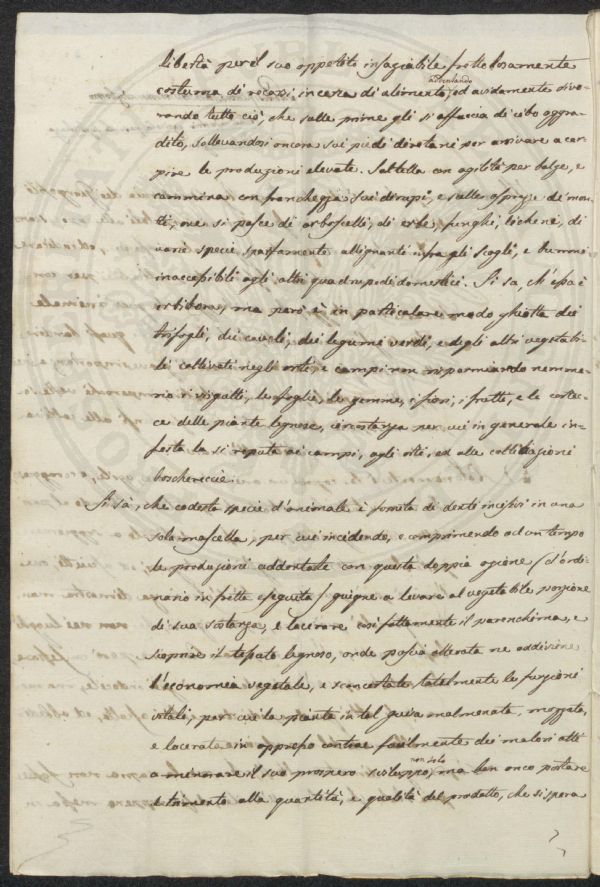 libertà per il suo appetito insaziabile frettolosamente
avventando
costuma di recarsi in cerca di alimento, ed avidamente divo-
rando tutto ciò, che sulle prime gli si affaccia di cibo aggra-
dito, sollevandosi ancora sui piedi diretani per arrivare a car-
pire le produzioni elevate. Saltella con agilità per balze, e
cammina con franchezza sui dirupi, e sulle asprezze de' mon-
ti, ove si pasce di arboscelli, di erbe, funghi, lichene, di
varie specie sparsamente allignanti infra gli scogli, e
inaccessibili agli altri quadrupedi domestici. Si sa, ch'essa è
erbivora, ma però è in particolare modo ghiotta dei
trifogli, dei cavoli, dei legumi verdi, e degli altri vegetabi-
li coltivati negli orti, e campi non risparmiando nemme-
no i virgulti, le foglie, le gemme, i fiori, i frutti, e le cortec-
ce delle piante legnose, circostanza per cui in generale in-
festa la si reputa ai campi, agli orti, ed alle coltivazioni
boschereccie.
Si sà, che codesta specie d'animale è fornita di denti incisivi in una
sola mascella, per cui incidendo, e comprimendo ad un tempo
le produzioni addentate con questa doppia azione (d'ordi-
nario in fretta eseguita) giugne a levare al vegetabile porzione
di sua sostanza, e lacerare così fattamente il parenchima, e
scoprire il tessuto legnoso, onde poscia alterata ne addiviene
l'economia vegetale, e sconcertate talmente le funzioni
vitali, per cui la pianta in tal guisa malmenata, mozzata,
e lacerata in appresso contrae facilmente dei malori atti
non solo
a minorare il suo prospero sviluppo, ma ben anco portare
detrimento alla quantità, e qualità del prodotto, che si spera